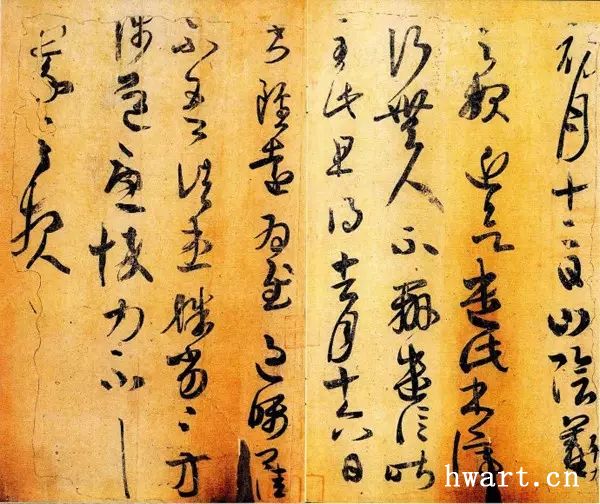 初月十二日山陰羲
之報近欲遣此書停
行無人不辦遣信昨
至此且得去月十六日
書雖遠為慰過囑
不吾諸患殊劣〻方
陟道憂悴力不具
羲之報
hwart.cn